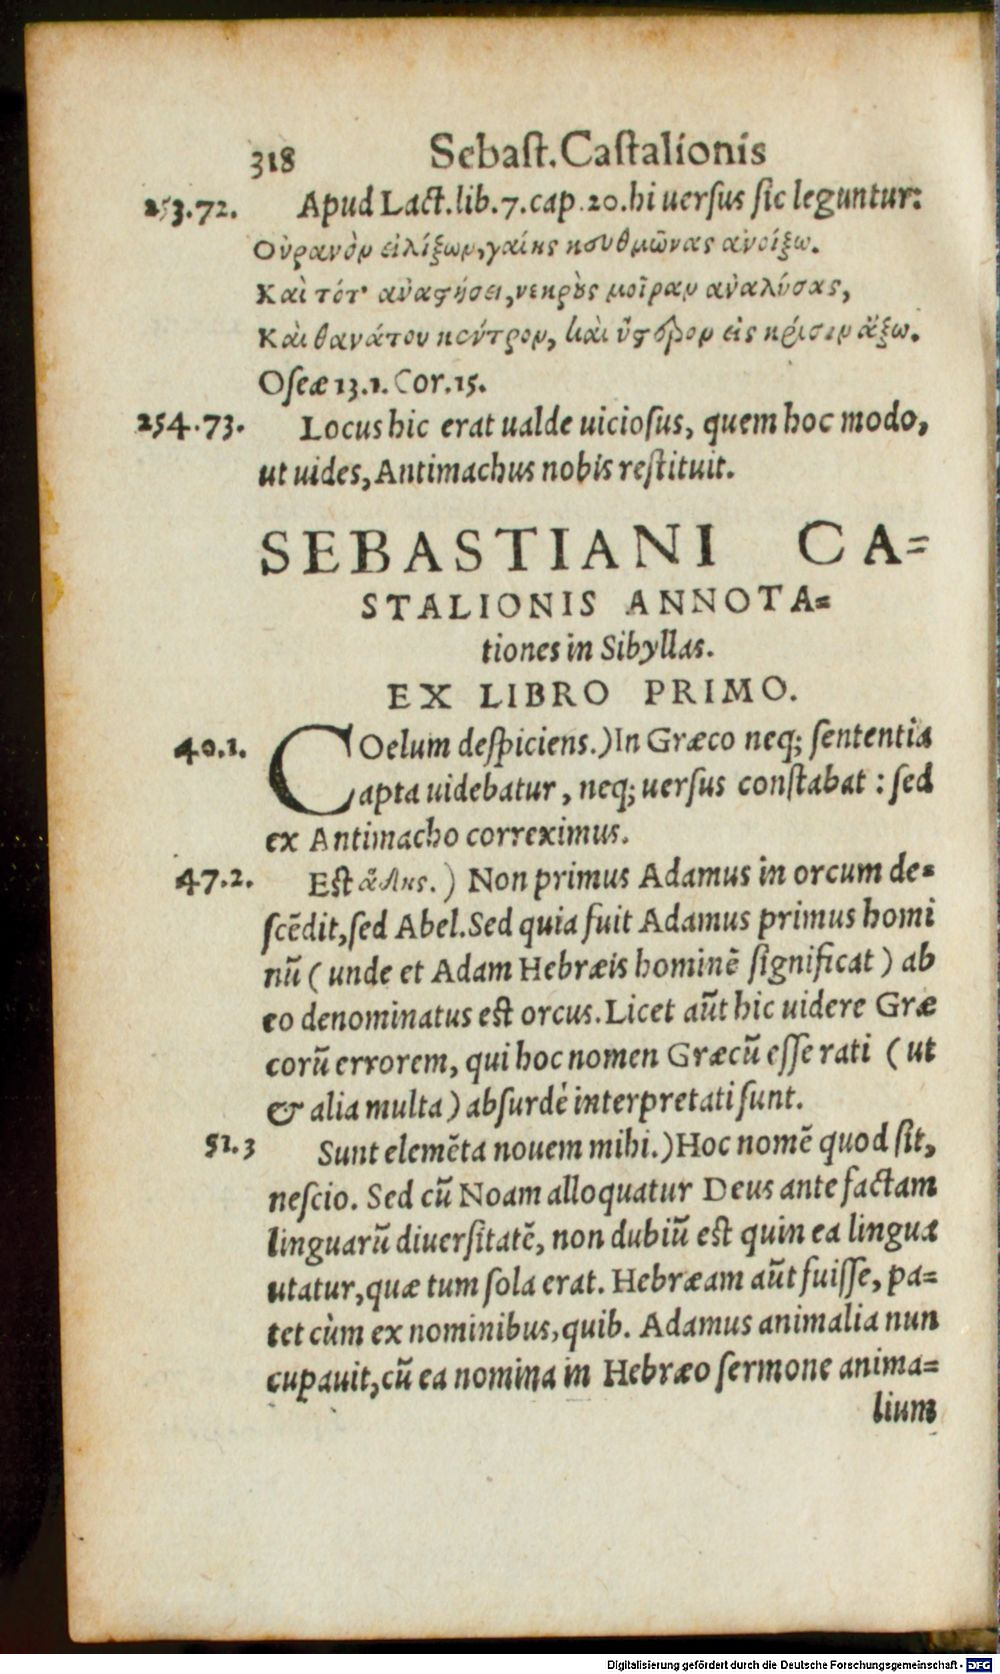 318 Sebast. Castalionis
253.72. Apud Lact. lib. 7. cap. 20. hi uersus sic leguntur:
Οὐρανὸν εἱλίξων, γαίης κευθμῶνας ἀνοίξω.
Καὶ τότ' ἀναστήσει, νεκροὺς μοῖραν ἀναλύσας,
Καὶ θανάτου κέντρον, καὶ ὕστερον εἰς κρίσιν ἄξω.
Oseæ 13. 1. Cor. 15.
254.73. Locus hic erat ualde uiciosus, quem hoc modo,
ut uides, Antimachus nobis restituit.
SEBASTIANI CA=
STALIONIS ANNOTA=
tiones in Sibyllas.
EX LIBRO PRIMO.
40.1. COelum despiciens.) In Græco neq; sententia
apta uidebatur, neq; uersus constabat: sed
ex Antimacho correximus.
47.2. Est ἅδης.) Non primus Adamus in orcum de=
scēdit, sed Abel. Sed quia fuit Adamus primus homi
nū (unde et Adam Hebræis hominē significat) ab
eo denominatus est orcus. Licet aūt hic uidere Græ
corū errorem, qui hoc nomen Græcū esse rati (ut
& alia multa) absurdè interpretati sunt.
51.3 Sunt elemēta nouem mihi.) Hoc nomē quod sit,
nescio. Sed cū Noam alloquatur Deus ante factam
linguarū diuersitatē, non dubiū est quin ea lingua
utatur, quæ tum sola erat. Hebræam aūt fuisse, pa=
tet cùm ex nominibus, quib. Adamus animalia nun
cupauit, cū ea nomina in Hebræo sermone anima=
lium
Digitalisierung gefördert durch die Deutsche Forschungsgemeinschaft - DFG